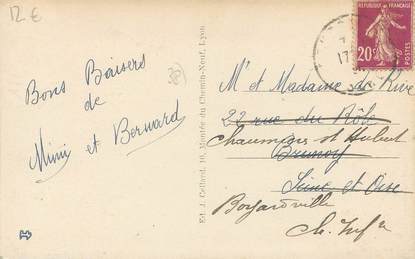 12 €
Bons Baisers
de
Mimi et Bernard
38
Ed. J. Cellard, 10, Montée du Chemin-Neuf, Lyon
REPUBLIQUE FRANÇAISE
20c
POSTES
17
Mr et Madame Rive
22 rue du Rôle
Chaumière St Hubert
Brunoy
Seine et Oise
Boyardville
Ch. Infre